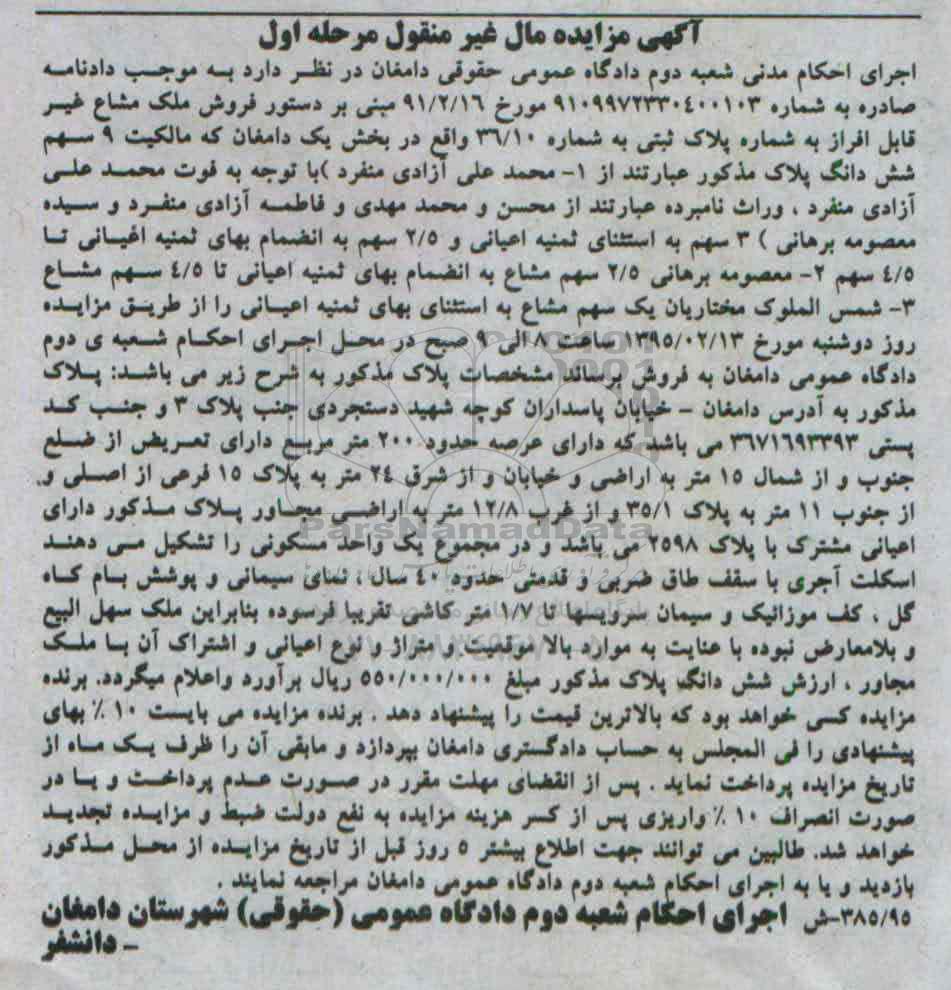 آگهی مزایده مال غیر منقول مرحله اول
اجرای احکام مدنی شعبه دوم دادگاه عمومی حقوقی دامغان در نظر دارد به موجب دادنامه
صادره به شماره ۹۱۰۹۹۷۲۳۳۰۴۰۰۱۰۳ مورخ ۹۱/۲/۱۶ مبنی بر دستور فروش ملک مشاع غیر
قابل افراز به شماره پلاک ثبتی به شماره ۳۶/۱۰ واقع در بخش یک دامغان که مالکیت ۹ سهم
شش دانگ پلاک مذکور عبارتند از ۱- محمد علی آزادی منفرد )با توجه به فوت محمد علی
آزادی منفرد ، وراث نامبرده عبارتند از محسن و محمد مهدی و فاطمه آزادی منفرد و سیده
معصومه برهانی ) ۳ سهم به استثنای ثمنیه اعیانی و ۲/۵ سهم به انضمام بهای ثمنیه اغیانی تا
۴/۵ سهم ۲- معصومه برهانی ۲/۵ سهم مشاع به انضمام بهای ثمنیه اعیانی تا ۴/۵ سهم مشاع
۳- شمس الملوک مختاریان یک سهم مشاع به استثنای بهای ثمنیه اعیانی را از طریق مزایده
روز دوشنبه مورخ ۱۳۹۵/۰۲/۱۳ ساعت ۸ الی ۹ صبح در محل اجرای احکام شعبه ی دوم
دادگاه عمومی دامغان به فروش برساند مشخصات پلاک مذکور به شرح زیر می باشد: پلاک
مذکور به آدرس دامغان - خیابان پاسداران کوچه شهید دستجردی جنب پلاک ۳ و جنب کد
پستی ۳۶۷۱۶۹۳۳۹۳ می باشد که دارای عرصه حدود ۲۰۰ متر مربع دارای تعریض از ضلع
جنوب و از شمال ۱۵ متر به اراضی و خیابان و از شرق ۲۴ متر به پلاک ۱۵ فرعی از اصلی و
از جنوب ۱۱ متر به پلاک ۳۵/۱ و از غرب ۱۲/۸ متر به اراضی مجاور پلاک مذکور دارای
ParsNamadData
اعیانی مشترک با پلاک ۲۵۹۸ می باشد و در مجموع یک واحد مسکونی را تشکیل می دهند
اسکلت آجری با سقف طاق ضربی و قدمتی حدود ۴۰ سال ، نمای سیمانی و پوشش بام کاه
گل ، کف موزائیک و سیمان سرویسها تا ۱/۷ متر کاشی تقریبا فرسوده بنابراین ملک سهل البیع
و بلامعارض نبوده با عنایت به موارد بالا موقعیت و متراژ و نوع اعیانی و اشتراک آن با ملک
مجاور ، ارزش شش دانگ پلاک مذکور مبلغ ۵۵۰/۰۰۰/۰۰۰ ریال برآورد واعلام میگردد. برنده
مزایده کسی خواهد بود که بالاترین قیمت را پیشنهاد دهد . برنده مزایده می بایست ۱۰ ٪ بهای
پیشنهادی را فی المجلس به حساب دادگستری دامغان بپردازد و مابقی آن را ظرف یک ماه از
تاریخ مزایده پرداخت نماید . پس از انقضای مهلت مقرر در صورت عدم پرداخت و یا در
صورت انصراف ۱۰ ٪ واریزی پس از کسر هزینه مزایده به نفع دولت ضبط و مزایده تجدید
خواهد شد. طالبین می توانند جهت اطلاع بیشتر ۵ روز قبل از تاریخ مزایده از محل مذکور
بازدید و یا به اجرای احکام شعبه دوم دادگاه عمومی دامغان مراجعه نمایند .
۳۸۵/۹۵-ش اجرای احکام شعبه دوم دادگاه عمومی (حقوقی) شهرستان دامغان
- دانشفر